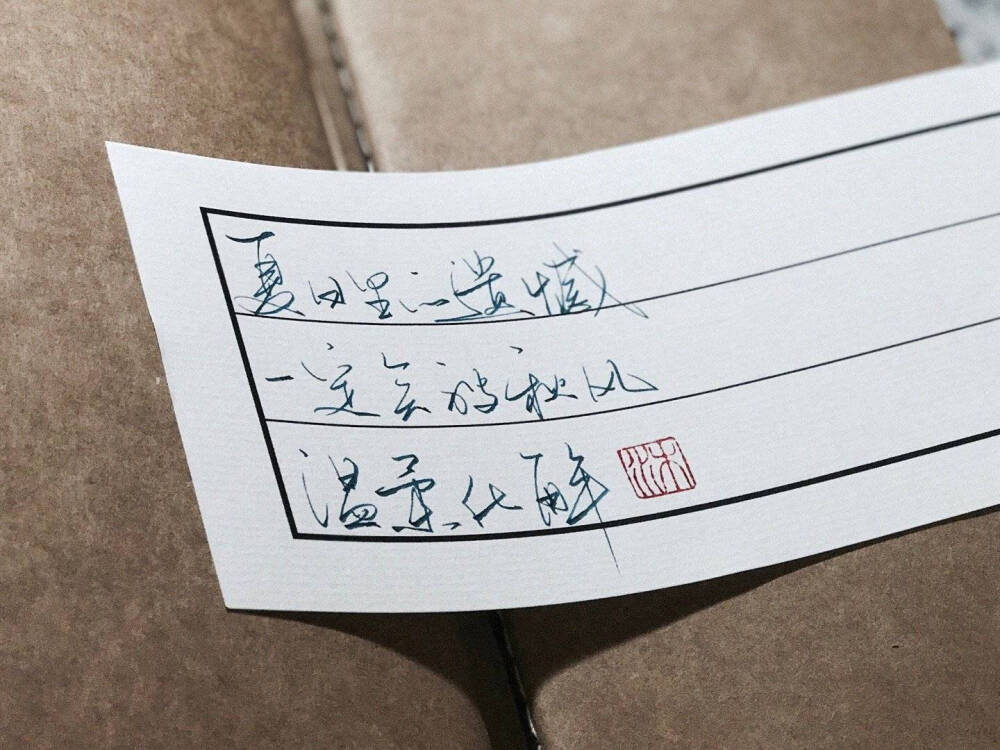 夏日里的遗憾
一定会被秋风
温柔化解